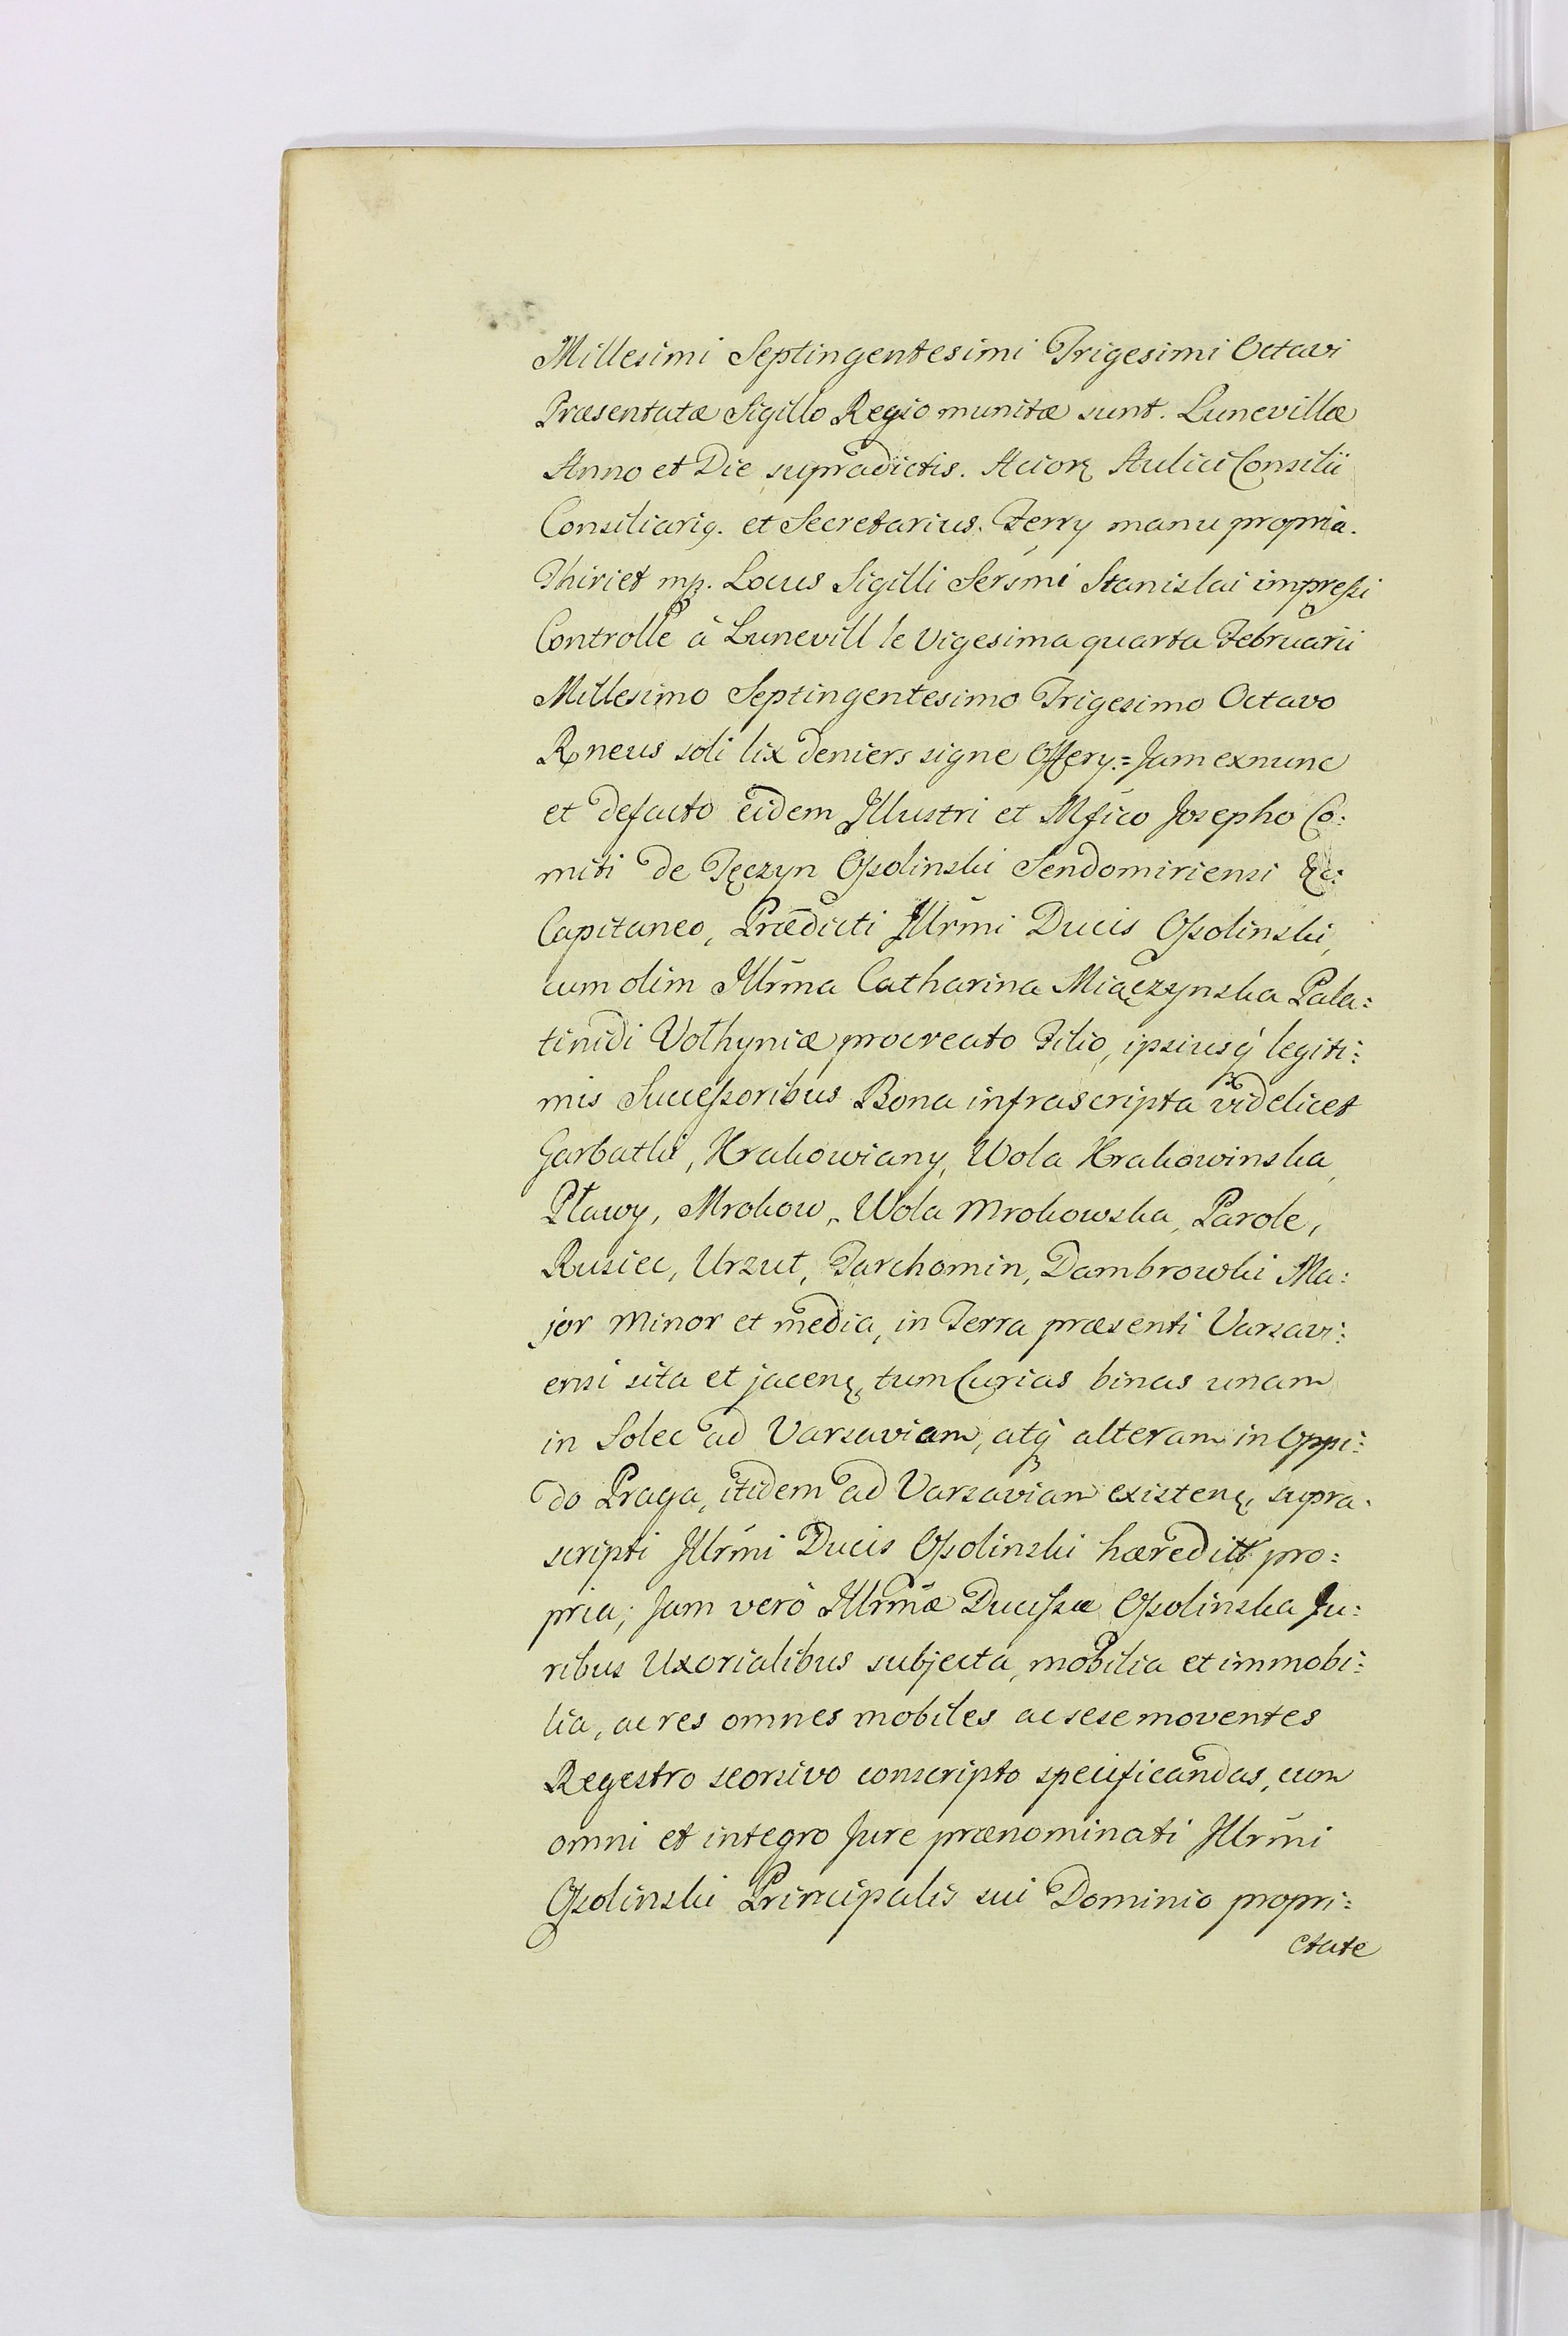 Millesimi Septingentesimi Trigesimi Octavi
Præsentatæ Sigillo Regio munitæ sunt. Lunevillæ
Anno et Die supradictis. Aulici Consilii
Consiliariꝯ. et Secretarius. Ferry manu propria.
Thiriet mp. Locus Sigilli Sers̄mi Stanislai impreſsi
Controlle à Lunevill le Vigesima quarta Februarii
Millesimo Septingentesimo Trigesimo Octavo
soli lix deniers signe Offery.= Jam exnunc
et defacto eidem Illustri et Mfico Josepho Co:
miti de Tęczyn Oſsolinski Sendomiriensi &c:
Capitaneo, Prædicti Illrm̄i Ducis Oſsolinski,
cum olim Illrm̄a Catharina Miączynska Pala:
tinidi Volhyniæ procreato Filio, ipsiusq́ legiti:
mis Succeſsoribus Bona infrascripta videlicet
Garbatki, Krakowiany, Wola Krakowinska,
Pławy, Mrokow, Wola Mrokowska, Parole,
Rusiec, Urzut, Tarchomin, Dambrowki Ma:
jor Minor et media, in Terra præsenti Varsavi:
ensi sita et jacenꝫ, tum Curias binas unam
in Solec ad Varsaviam, atq́ alteram in Oppi:
do Praga, itidem ad Varsaviam existenꝫ, supra:
scripti Illrm̄i Ducis Oſsolinski hæreditt pro:
pria; Jam verò Illrm̄æ Duciſsæ Oſsolinska Ju:
ribus Uxorialibus subjecta, mobilia et immobi:
lia, ac res omnes mobiles ac sese moventes
Regestro seorsivo conscripto specificandas, cum
omni et integro Jure prænominati Illrm̄i
Oſsolinski Principalis sui Dominio propri:
etate